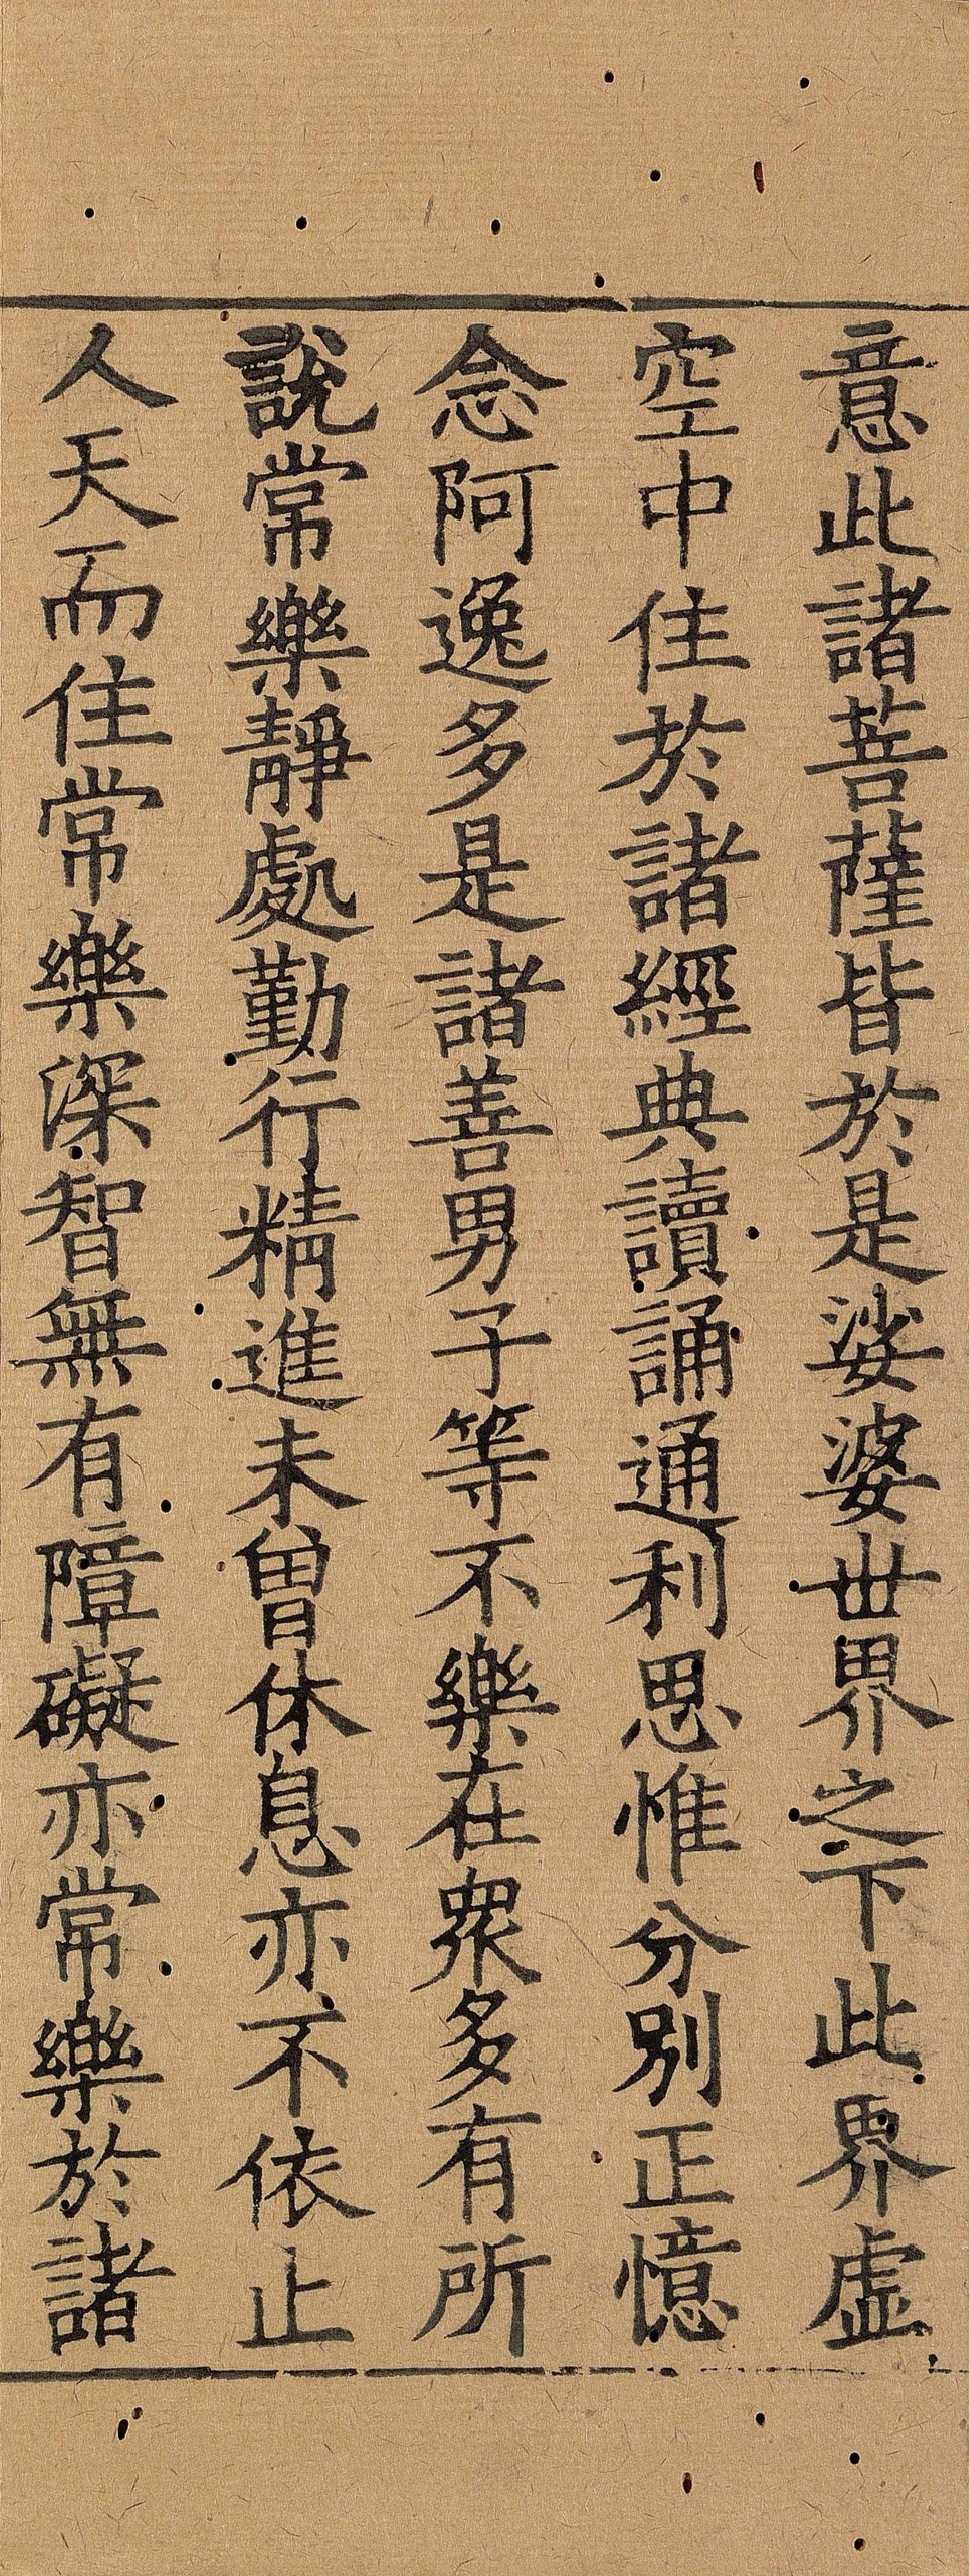 意此諸菩薩皆於是娑婆世界之下此界虛
空中住於諸經典讀誦通利思惟分別正憶
念阿逸多是諸善男子等不樂在眾多有所
說常樂靜處勤行精進未曾休息亦不依止
人天而住常樂深智無有障礙亦常樂於諸